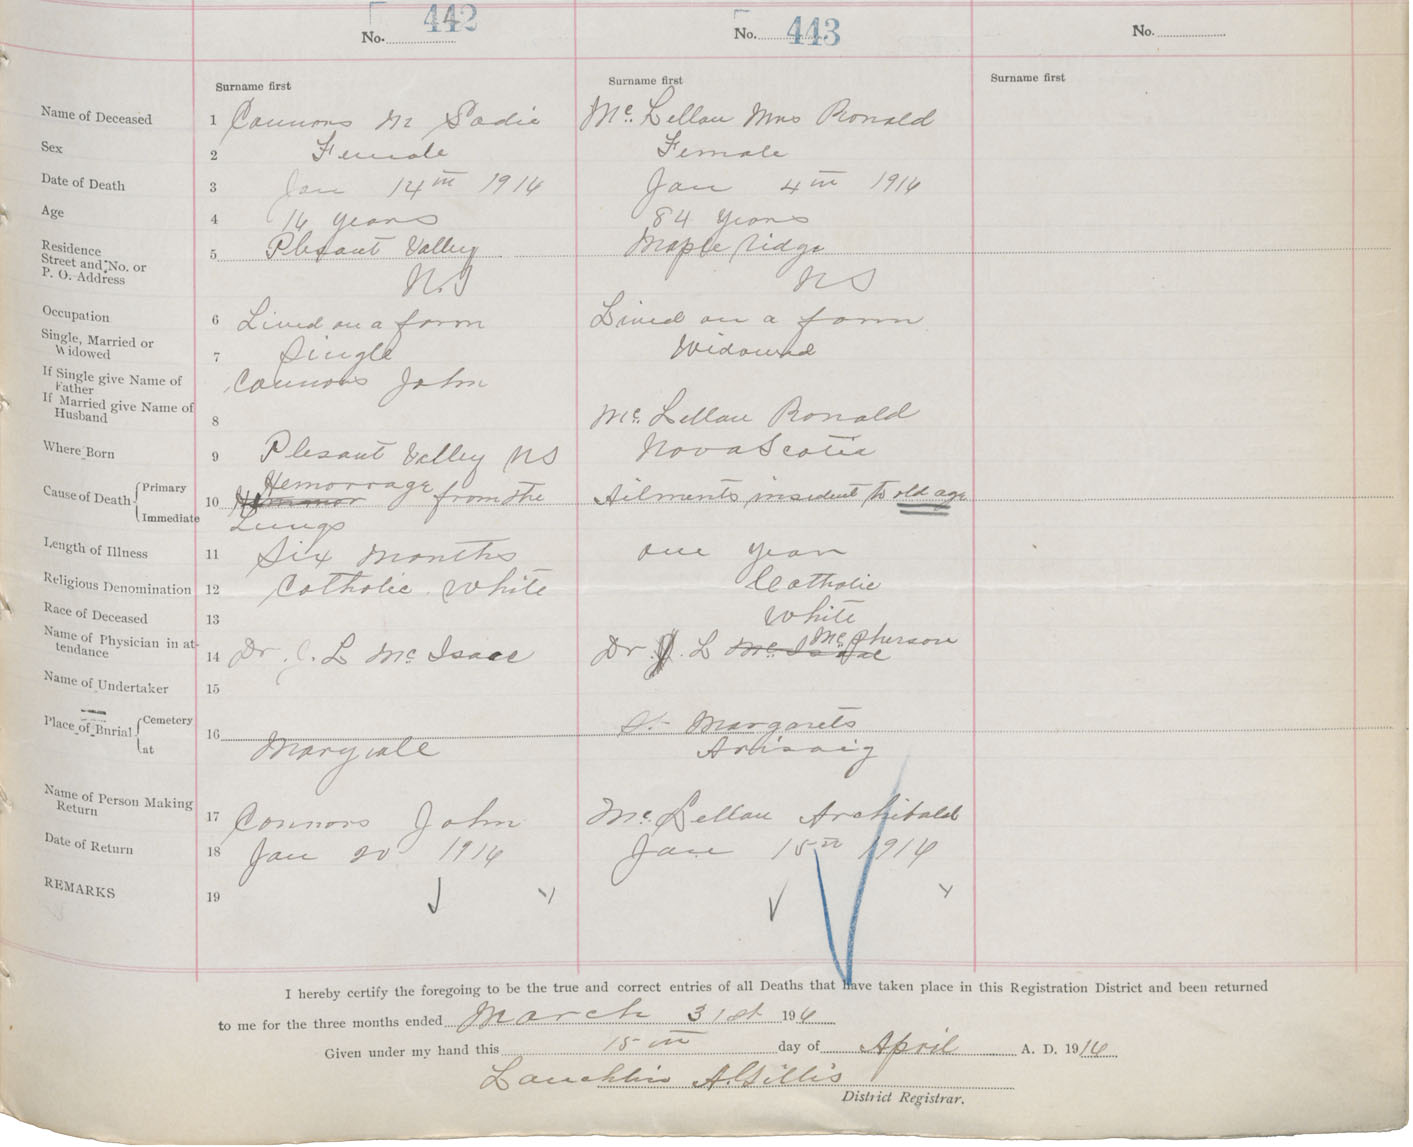 No. 442 No. 443 No.
Surname first Surname first Surname first
Name of Deceased 1 Connors M Sadie Mc. Lellan Mrs Ronald
Sex 2 Female Female
Date of Death 3 Jan 14th 1916 Jan 4th 1916
Age 4 16 years 84 years
Residence Street and No. or P. O. Address 5 Plesant Valley Maple Ridge
N.S NS
Occupation 6 Lived on a farm Lived on a farm
Single, Married or Widowed 7 Single Widowed
If Single give Name of Father Connors John
If Married give Name of Husband 8 Mc. Lellan Ronald
Where Born 9 Plesant Valley NS Nova Scotia
Cause of Death Primary Immediate 10 Hemorrage from the Ailments insident to old age
Lungs
Length of Illness 11 Six Months one year
Religious Denomination 12 Catholic White Catholic
Race of Deceased 13 White
Name of Physician in attendance 14 Dr. J. L Mc Isaac Dr. J. L Mc Isaac Mc Pherson
Name of Undertaker 15
Place of Burial Cemetery at 16 St Margarets
Maryvale Arisaig
Name of Person Making Return 17 Connors John Mc. Lellan Archibald
Date of Return 18 Jan 20 1916 Jan 15th 1916
REMARKS 19
I hereby certify the foregoing to be the true and correct entries of all Deaths that have taken place in this Registration District and been returned
to me for the three months ended March 31st 196
Given under my hand this 15th day of April A. D. 1916
Lauchlin A. Gillis
District Registrar.